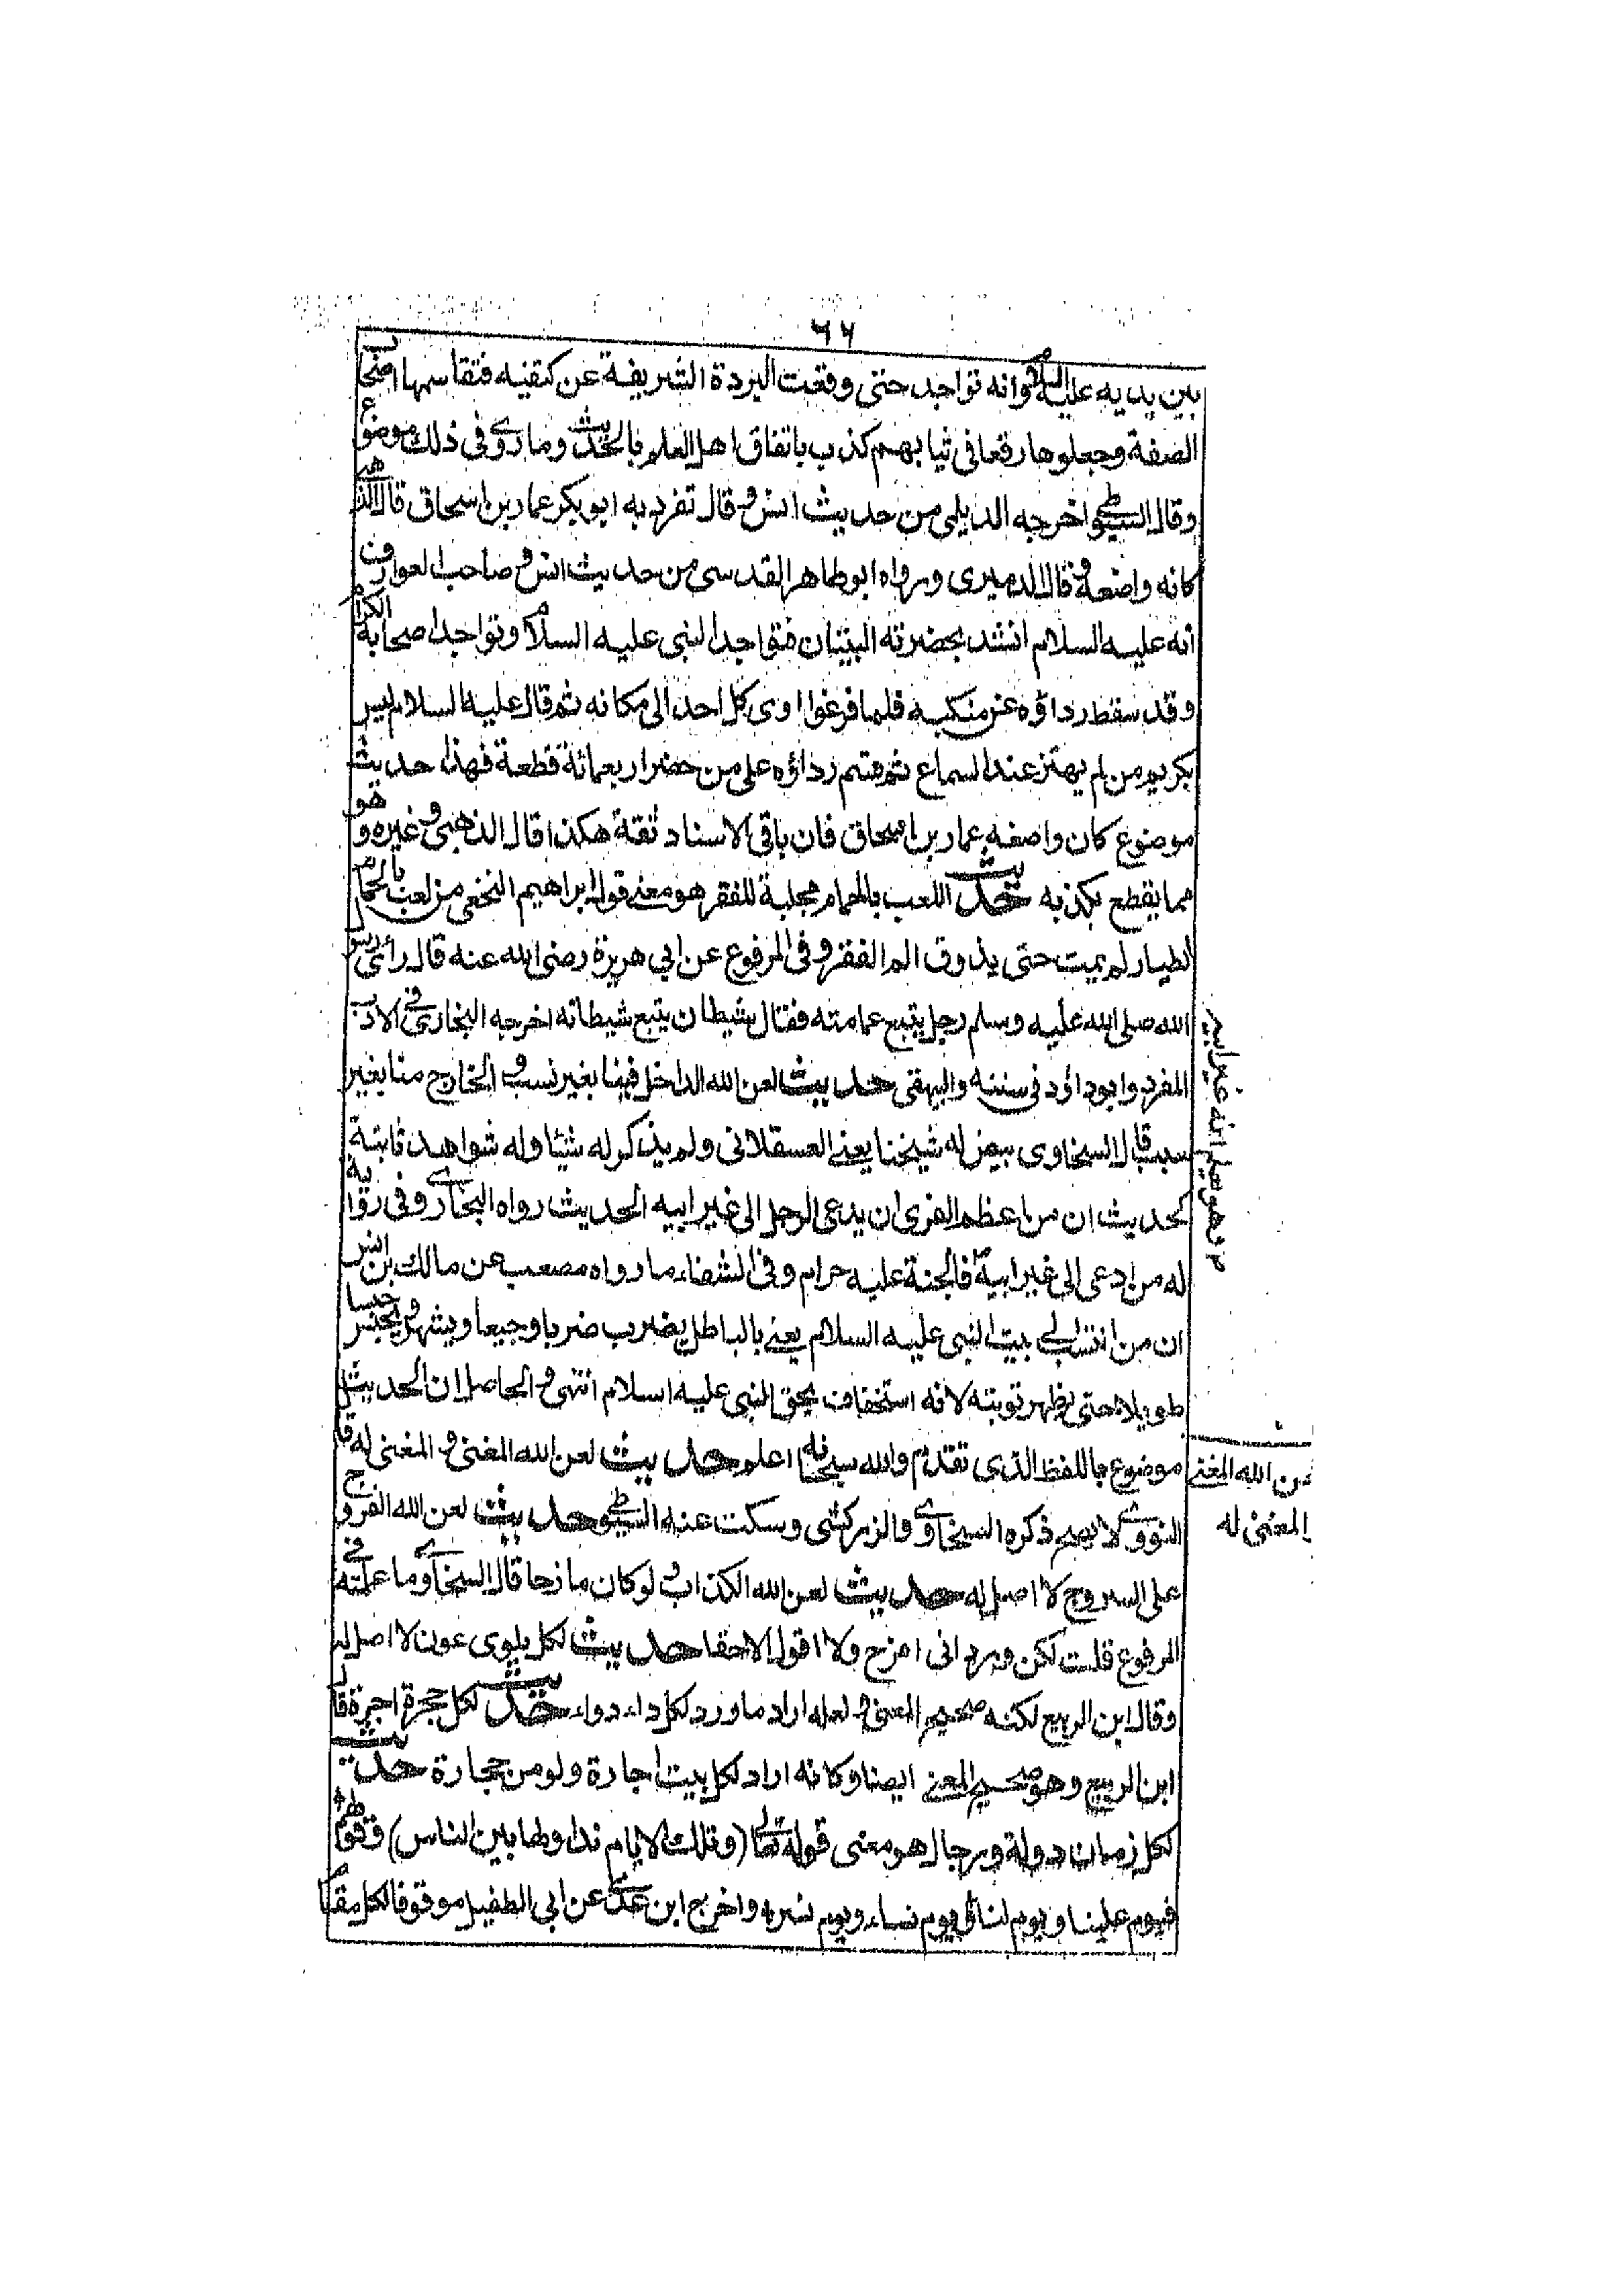 ٦٦
بين يديه عليه السلام وانه تواجد حتى وقعت البردة الشريفة عن كتفيه فتقاسمها اصحاب
الصفة وجعلوها رقعا فى ثيابهم كذب باتفاق اهل العلم بالحديث وما روى فى ذلك موضوع
وقال السيوطى اخرجه الديلمى من حديث انس وقال تفرد به ابو بكر عمار بن اسحاق قال الذهبى
كانه واضعه وقال الدميرى ورواه ابو طاهر القدسى من حديث انس وصاحب العوارف
انه عليه السلام انشد بحضرته البيتان فتواجد النبى عليه السلام وتواجد اصحابه الكرام
وقد سقط رداؤه عن منكبيه فلما فرغوا اوى كل احد الى مكانه ثم قال عليه السلام ليس
بكريم من لم يهتز عند السماع ثم قسم رداؤه على من حضر اربعمائة قطعة فهذا حديث
موضوع كان واضعه عمار بن اسحاق فان باقى الاسناد ثقة هكذا قال الذهبى وغيره وهو
مما يقطع بكذبه حديث اللعب بالحمام مجلبة للفقر هو معنى قول ابراهيم النخعى من لعب بالحمام
لطيار لم يمت حتى يذوق الم الفقر وفى المرفوع عن ابي هريرة رضى الله عنه قال رأى رسول
الله صلى الله عليه وسلم رجل يتبع حمامته فقال شيطان يتبع شيطانه اخرجه البخارى فى الادب
المفرد وابو داؤد فى سننه والبيهقى حديث لعن الله الداخل فينا بغير نسب والخارج منا بغير
سبب قال السخاوى بيض له شيخنا يعنى العسقلانى ولم يذكر له شيئا وله شواهد ثابتة
كحديث ان من اعظم الفرى ان يدعى الرجل الى غير ابيه الحديث رواه البخارى وفى رواية
له من ادعى الى غير ابيه فالجنة عليه حرام وفى الشفاء ما رواه مصعب عن مالك بن انس
ان من انتسب الى بيت النبى عليه السلام يعنى بالباطل يضرب ضربا وجيعا ويشهر ويحبس حبسا
طويلا حتى يظهر توبته لانه استخفاف بحق النبى عليه اسلام انتهى والحاصل ان الحديث
موضوع باللفظ الذى تقدم والله سبحانه اعلم حديث لعن الله المغنى والمغنى له قا
النووى لا يصح ذكره السخاوى والزركشى وسكت عنه السيوطى حديث لعن الله الفروج
على السروج لا اصل له حديث لعن الله الكذاب ولو كان مازحا قال السخاوى ما علمته فى
المرفوع قلت لكن ورد انى امزح ولا اقول الا حقا حديث لكل بلوى عون لا اصل له
وقال ابن الربيع لكنه صحيح المعنى ولعله اراد ما ورد لكل داء دواء حديث لكل حجرة اجرة قال
ابن الربيع وهو صحيح المعنى ايضا وكانه اراد لكل بيت اجارة ولو من حجارة حديث
لكل زمان دولة ورجال هو معنى قوله تعالى (وتلك الايام نداولها بين الناس) وقولهم
فيوم علينا ويوم لنا ويوم نساء ويوم نسر واخرج ابن عدى عن ابى الطفيل موقوفا لكل مقام
م وهو يعلم انه غير ابيه
لعن الله المغنى
المغنى له